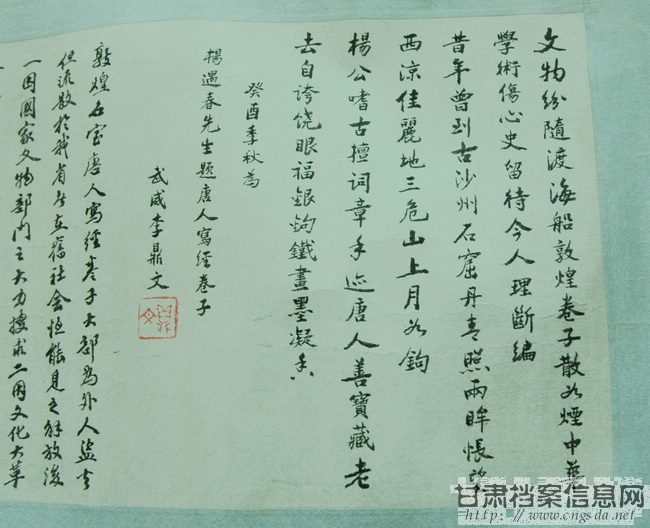 文物紛隨渡海船敦煌卷子散如煙中華
學術傷心史留待今人理斷編
昔年曾到古沙州石窟丹青照兩眸悵望
西涼佳麗地三危山上月如鉤
楊公嗜古擅詞章手迹唐人善寶藏老
去自誇饶眼福銀鉤鐵畫墨凝香
癸酉季秋為
楊遇春先生題唐人寫經卷子
武威李鼎文
敦煌石室唐人寫經卷子大部為外人盜去
但流散於我省者在舊社會恒能見之解放後
一因國家文物部门之大力搜求二因文化大革
甘肃档案信息网
http://www.cngsda.net